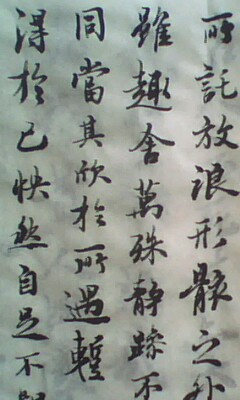 所託放浪形骸之外
雖趣舍萬殊静躁不
同當其欣於所遇暫
得於己快然自足不